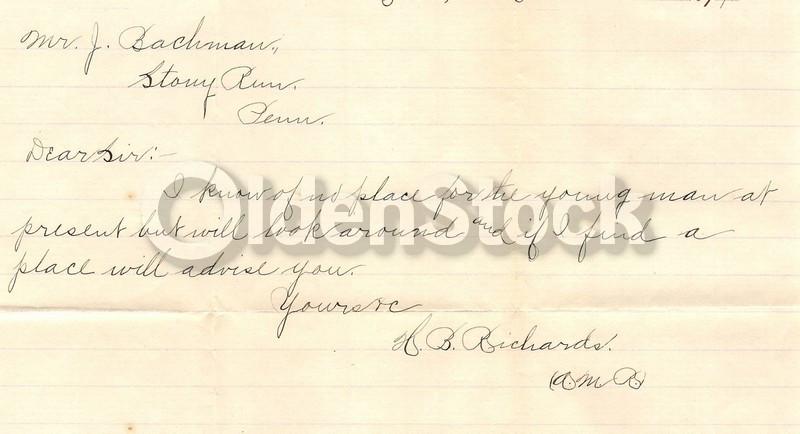 Mr. J. Bachman.,
Stony Run.
Penn.
Dear Sir:-
I know of no place for the young man at
present but will look around and if I find a
place will advise you.
Yours &c
H. B. Richards.
(A.M.R.)
OldenStock